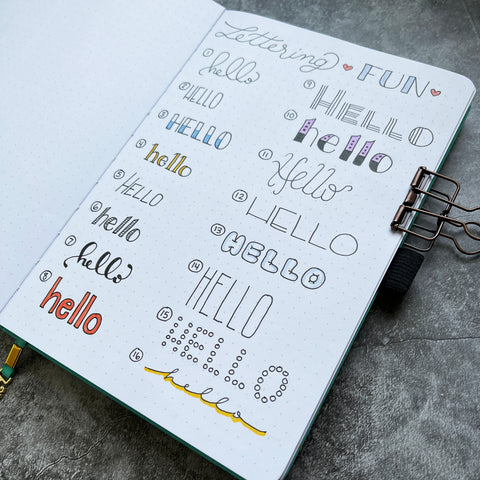 Lettering ♥ FUN ♥
1 hello
2 HELLO
3 HELLO
4 hello
5 HELLO
6 hello
7 hello
8 hello
9 HELLO
10 hello
11 Hello
12 HELLO
13 HELLO
14 HELLO
15 HELLO
16 hello